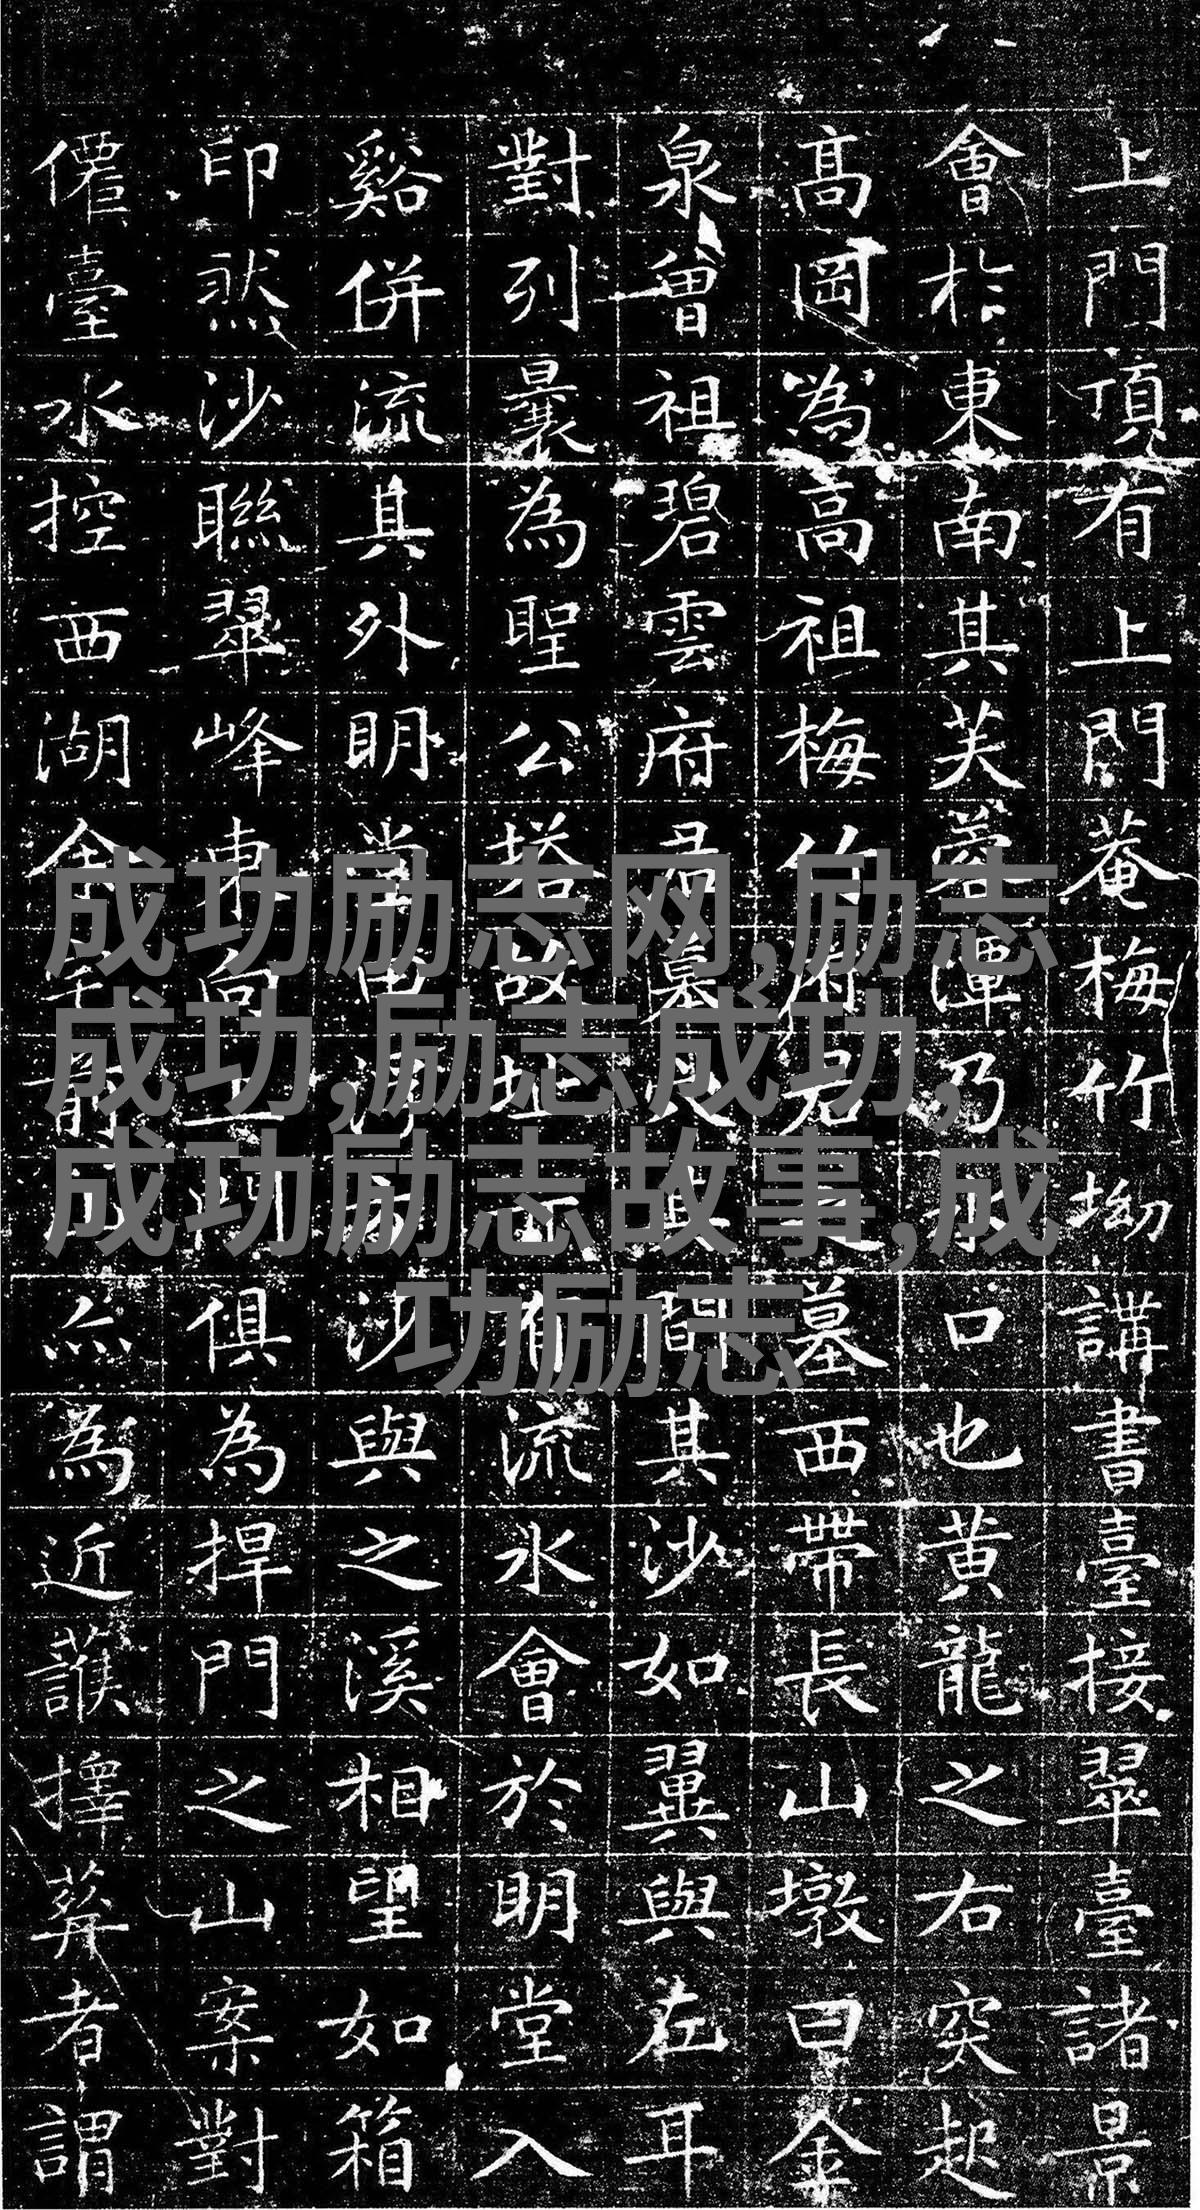 上門頂有上門菴梅竹坳講書臺接翠臺諸景
會扵東南其芙蓉潭乃水口也黃龍之右突起
髙岡為高祖梅竹府君之墓西帶長山墩曰金
泉曾祖碧雲府君墓其間其沙如翼與左耳
對列曩為聖公塔故址亦有流水會於明堂入
谿併流其外明堂沙與之溪相望如箱
印然沙聯翠峰東向上門俱為捍門之山案對
僊臺水控西湖余前山為近擇葬者謂
成功励志网,励志
成功,励志成功,
成功励志故事,成
功励志